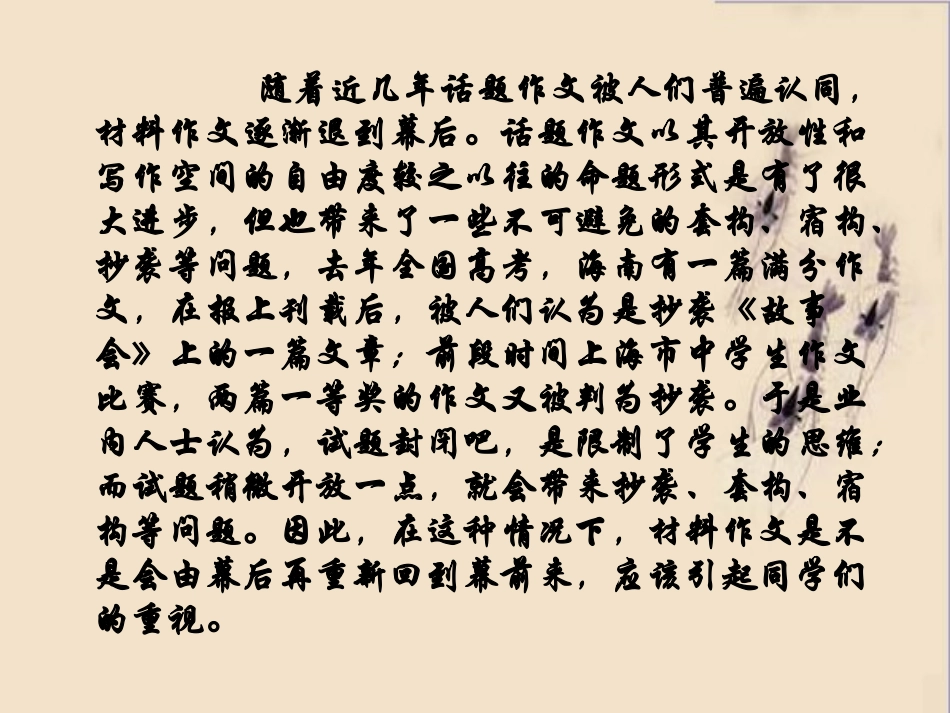 随着近几年话题作文被人们普遍认同，
材料作文逐渐退到幕后。话题作文以其开放性和
写作空间的自由度较之以往的命题形式是有了很
大进步，但也带来了一些不可避免的套构、宿构、
抄袭等问题，去年全国高考，海南有一篇满分作
文，在报上刊载后，被人们认为是抄袭《故事
会》上的一篇文章；前段时间上海市中学生作文
比赛，两篇一等奖的作文又被判为抄袭。于是业
内人士认为，试题封闭吧，是限制了学生的思维；
而试题稍微开放一点，就会带来抄袭、套构、宿
构等问题。因此，在这种情况下，材料作文是不
是会由幕后再重新回到幕前来，应该引起同学们
的重视。